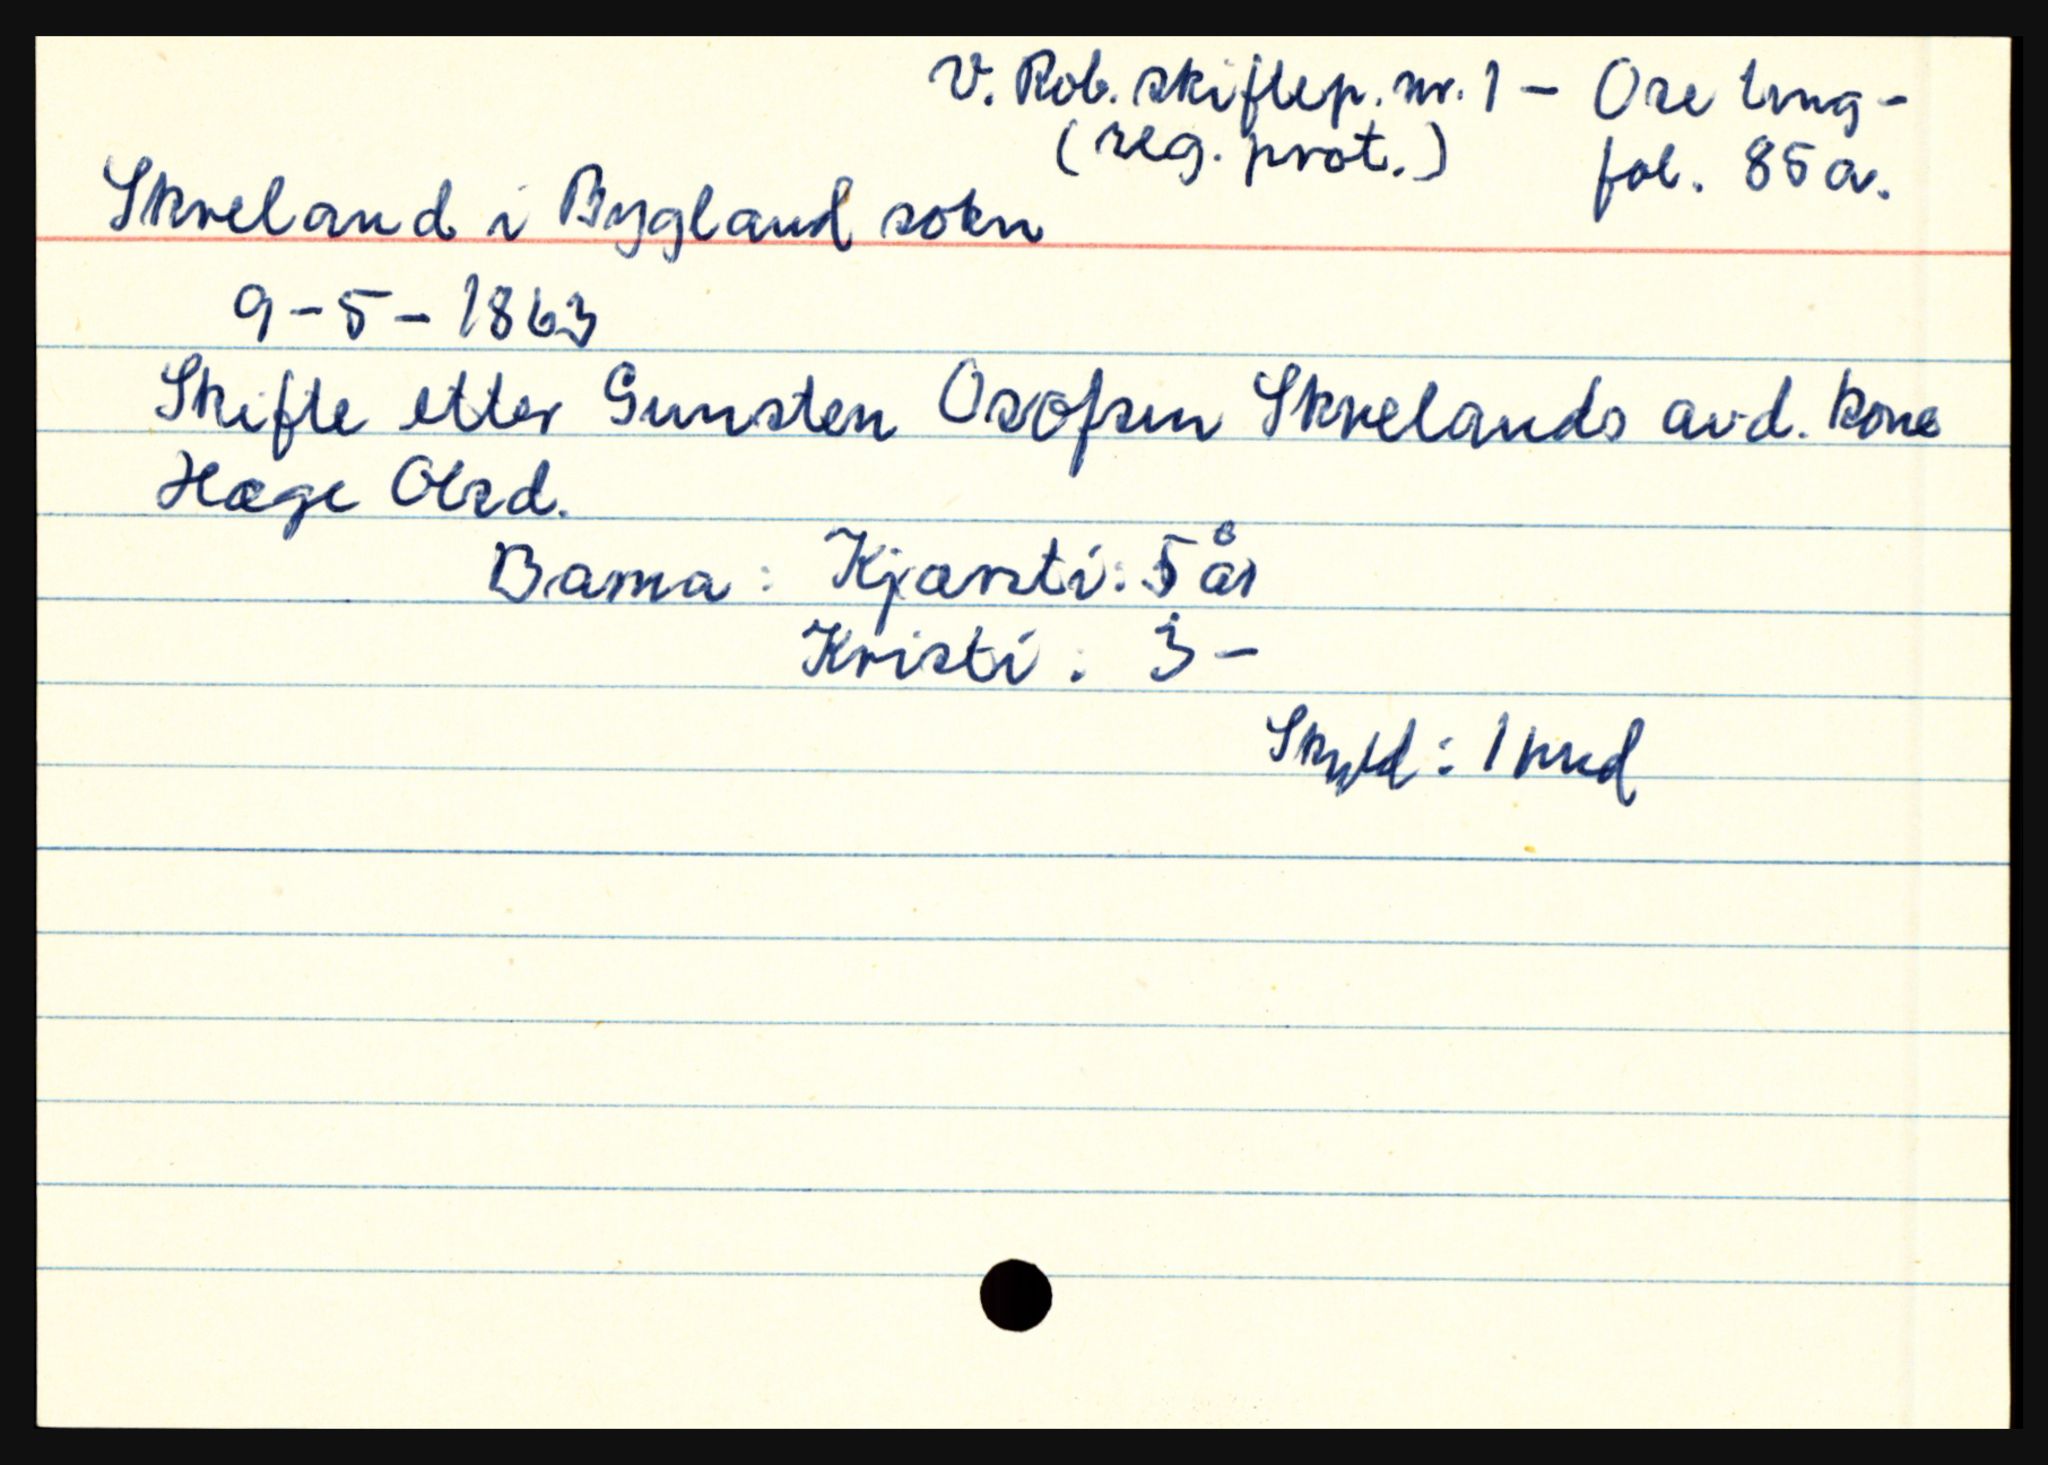 V. Rob. skiftep. nr. 1 – Ose ting-
(reg. prot.) fol. 85a.
Skreland i Bygland sokn
9-5-1863
Skifte etter Gunsten Osofsen Skrelands avd. kone
Hæge Olsd.
Barna: Kjærsti: 5 år
Kristi: 3 –
Skyld: 1 hud